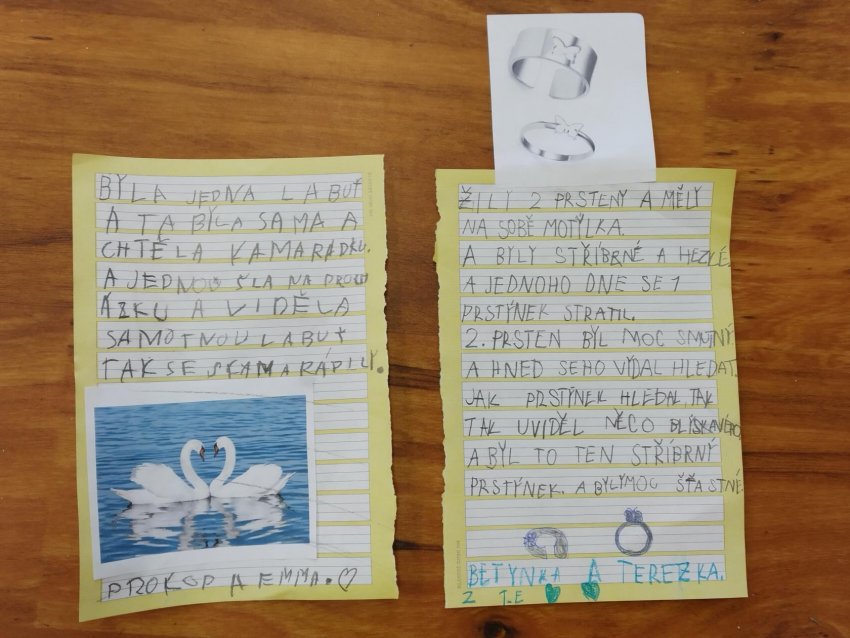 BYLA JEDNA LABUŤ
A TA BYLA SAMA A
CHTĚLA KAMARÁDKU.
A JEDNOU ŠLA NA PROCH
ÁZKU A VIDĚLA
SAMOTNOU LABUŤ
TAK SE SKAMARÁDILY.
PROKOP A EMMA.
ŽILY 2 PRSTENY A MĚLY
NA SOBĚ MOTÝLKA.
A BYLY STŘÍBRNÉ A HEZKÉ.
A JEDNOHO DNE SE 1
PRSTÝNEK STRATIL.
2. PRSTEN BYL MOC SMUTNÝ.
A HNED SEHO VYDAL HLEDAT.
JAK PRSTÝNEK HLEDAL, TAK
TAK UVIDĚL NĚCO BLÝSKAVÉHO
A BYL TO TEN STŘÍBRNÝ
PRSTÝNEK. A BYLYMOC ŠŤASTNÉ.
BETYNKA A TEREZKA.
Z T.E